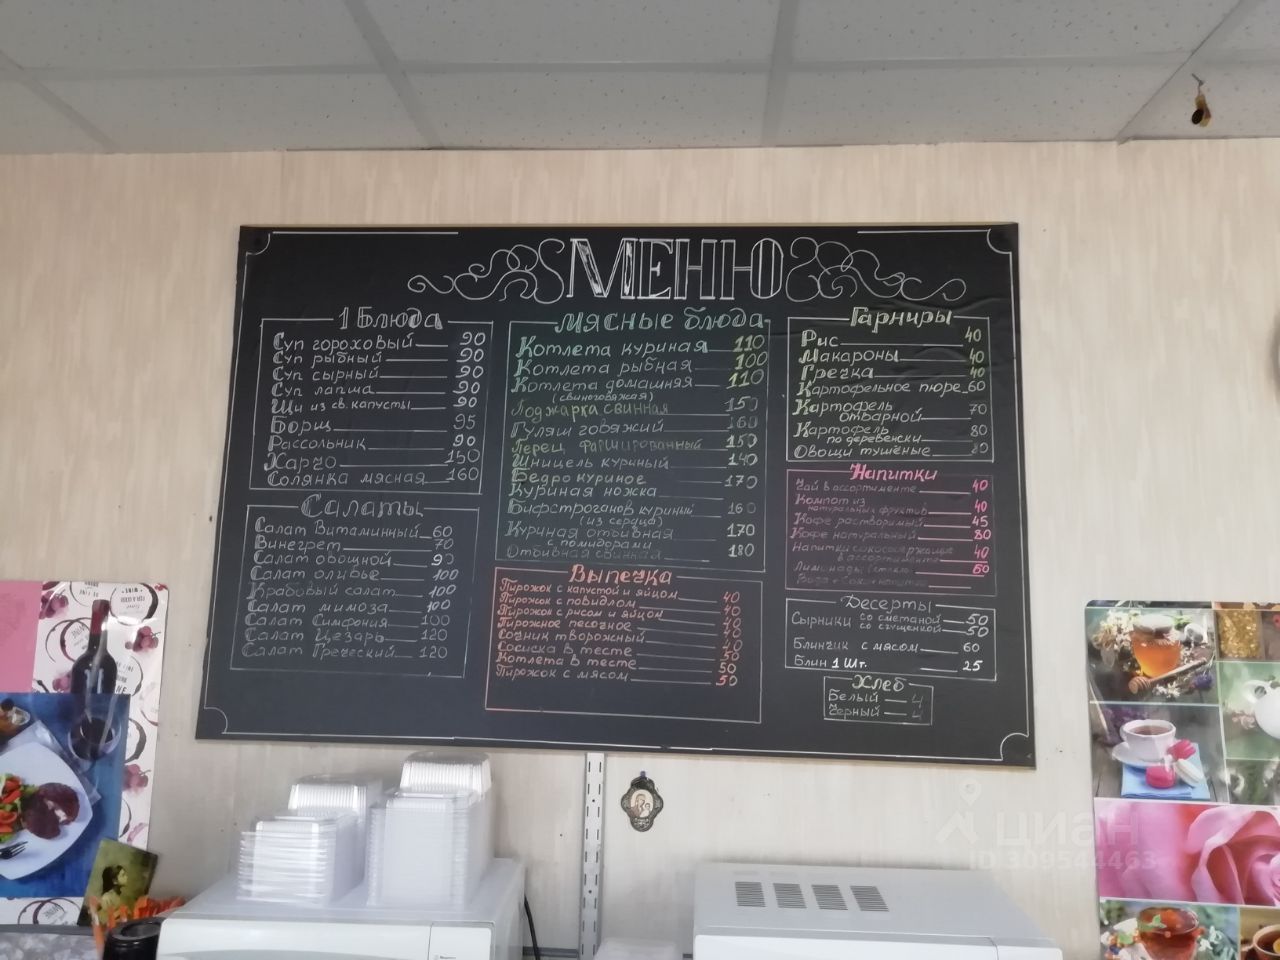 МЕНЮ
1 Блюда
Суп гороховый 90
Суп рыбный 90
Суп сырный 90
Суп лапша 90
Щи из св. капусты 90
Борщ 95
Рассольник 90
Харчо 150
Солянка мясная 160
Салаты
Салат Витаминный 60
Винегрет 70
Салат овощной 90
Салат оливье 100
Крабовый салат 100
Салат мимоза 100
Салат Симфония 100
Салат Цезарь 120
Салат Греческий 120
Мясные блюда
Котлета куриная 110
Котлета рыбная 100
Котлета домашняя 110
(свиноговяжая)
Поджарка свинная 150
Гуляш говяжий 160
Перец фаршированный 150
Шницель куриный 140
Бедро куриное 170
Куриная ножка
Бифстроганов куриный 160
(из сердца)
Куриная отбивная 170
с помидорами
Отбивная свинная 180
Выпечка
Пирожок с капустой и яйцом 40
Пирожок с повидлом 40
Пирожок с рисом и яйцом 40
Пирожное песочное 40
Сочник творожный 40
Сосиска в тесте 50
Котлета в тесте 50
Пирожок с мясом 50
Гарниры
Рис 40
Макароны 40
Гречка 40
Картофельное пюре 60
Картофель 70
отварной
Картофель 80
по деревенски
Овощи тушёные 80
Напитки
Чай в ассортименте 40
Компот из
натуральных фруктов 40
Кофе растворимый 45
Кофе натуральный 80
Напитки сокосодержащие 40
в ассортименте
Лимонады 60
Десерты
Сырники со сметаной 50
со сгущенкой 50
Блинчик с мясом 60
Блин 1 шт. 25
Хлеб
Белый 4
Черный 4
циан
ID 309544463